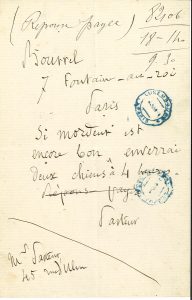 (Réponse payée)
82106
18-14
9.30
Bourrel
7 Fontaine-au-roi
Paris
Si mordent est
encore bon enverrai
deux chiens à 4 heures
Réponse pay
Pasteur
Mr Pasteur
45 rue d'Ulm